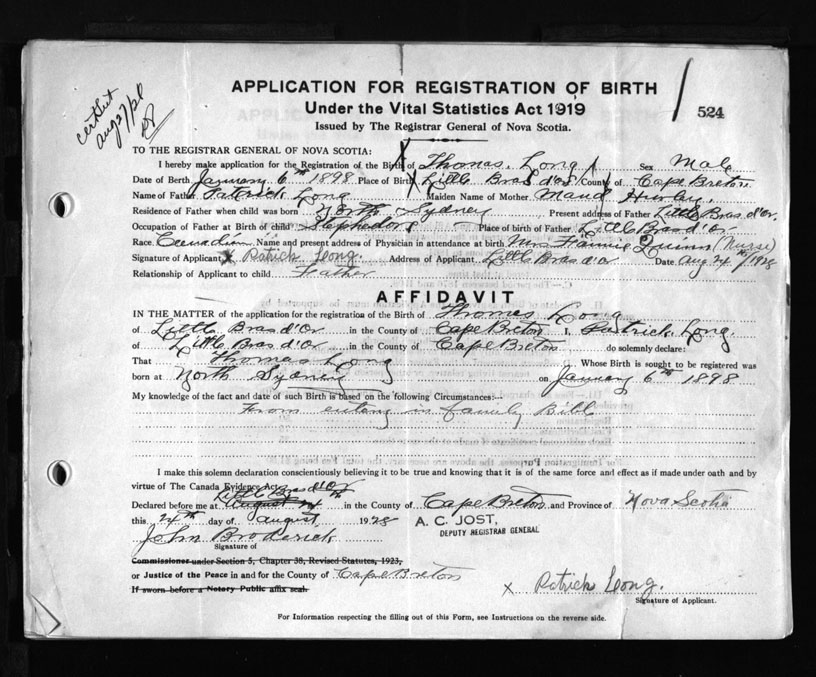 certificat
Aug 27/28
APPLICATION FOR REGISTRATION OF BIRTH
Under the Vital Statistics Act 1919
524
Issued by The Registrar General of Nova Scotia.
TO THE REGISTRAR GENERAL OF NOVA SCOTIA:
I hereby make application for the Registration of the Birth of Thomas Long Sex Male
Date of Birth January 6th 1898 Place of Birth Little Bras d'or County of Cape Breton
Name of Father Patrick Long Maiden Name of Mother Maud Hurley.
Residence of Father when child was born North Sydney Present address of Father Little Bras d'or.
Occupation of Father at Birth of child Stephedore Place of birth of Father Little Bras d'or
Race. Canadian Name and present address of Physician in attendance at birth Mrs Fannie Quinn (Nurse)
Signature of Applicant X Patrick Long. Address of Applicant Little Bras d'or Date Aug 24th/1928
Relationship of Applicant to child Father
AFFIDAVIT
IN THE MATTER of the application for the registration of the Birth of Thomas Long
of Little Bras d'Or in the County of Cape Breton I, Patrick Long.
of Little Bras d'or in the County of Cape Breton do solemnly declare:
That Thomas Long Whose Birth is sought to be registered was
born at North Sydney on January 6th 1898
My knowledge of the fact and date of such Birth is based on the following Circumstances:—
From entery in family Bible
I make this solemn declaration conscientiously believing it to be true and knowing that it is of the same force and effect as if made under oath and by
virtue of The Canada Evidence Act.
Little Bras d'Or
Declared before me at August 24th in the County of Cape Breton and Province of Nova Scotia
this 24th day of August 1928
A. C. JOST,
DEPUTY REGISTRAR GENERAL
John Broderick
Signature of
Commissioner under Section 5, Chapter 38, Revised Statutes, 1923,
or Justice of the Peace in and for the County of Cape Breton
If sworn before a Notary Public affix seal.
X Patrick Long.
Signature of Applicant.
For Information respecting the filling out of this Form, see Instructions on the reverse side.